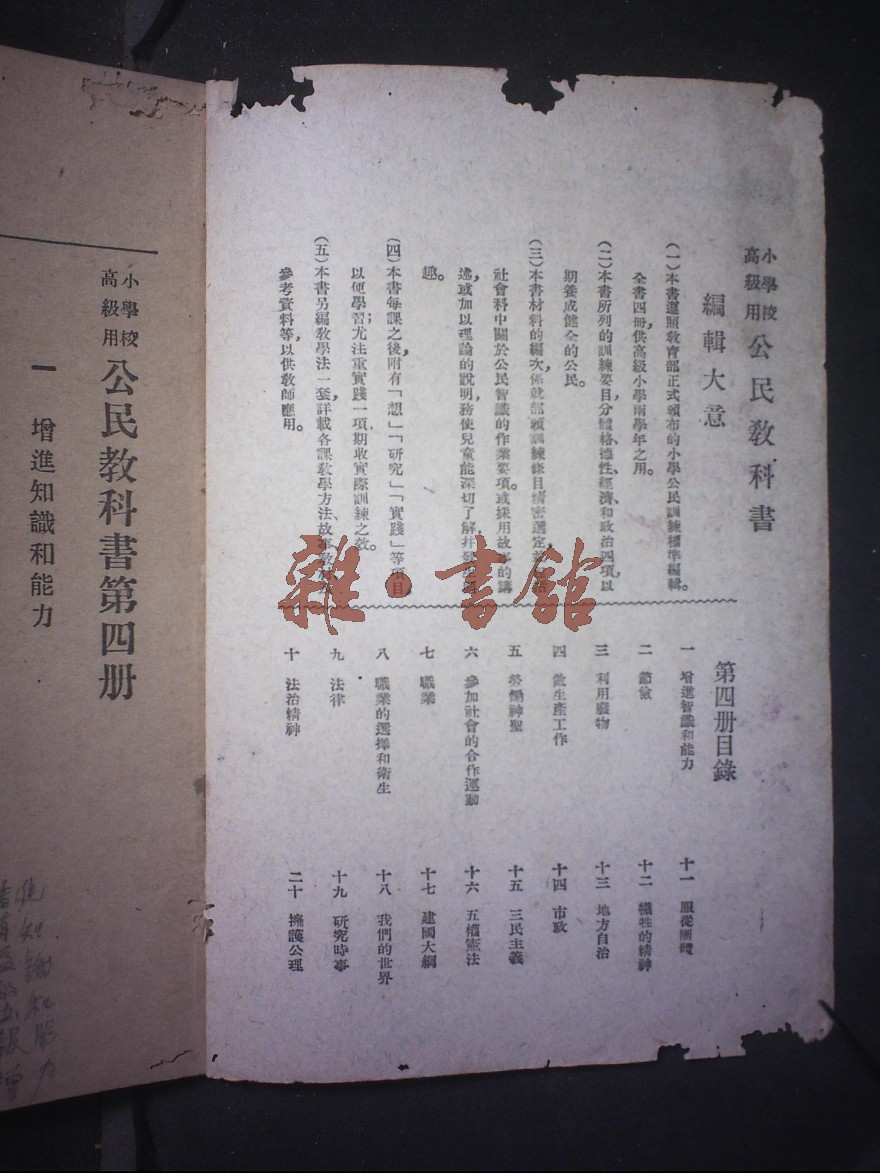 小學校高級用 公民教科書
編輯大意
(一)本書遵照教育部正式頒布的小學公民訓練標準編輯。
全書四冊,供高級小學兩學年之用。
(二)本書所列的訓練要目分體格、德性、經濟和政治四項,以
期養成健全的公民。
(三)本書材料的編次係就部頒訓練條目精密選定
社會科中關於公民智識的作業要項。或採用故事的講
述,或加以理論的說明,務使兒童能深切了解,并
趣。
(四)本書每課之後附有「想」「研究」「實踐」等項目,
以便學習;尤注重實踐一項,期收實際訓練之效。
(五)本書另編教學法一套,詳載各課教學方法、故事、教
參考資料等,以供教師應用。
第四册目錄
一 增進智識和能力
二 節儉
三 利用廢物
四 做生產工作
五 勞働神聖
六 參加社會的合作運動
七 職業
八 職業的選擇和衛生
九 法律
十 法治精神
十一 服從團體
十二 犧牲的精神
十三 地方自治
十四 市政
十五 三民主義
十六 五權憲法
十七 建國大綱
十八 我們的世界
十九 研究時事
二十 擁護公理
小學校高級用 公民教科書第四册
一 增進知識和能力
雜·書館